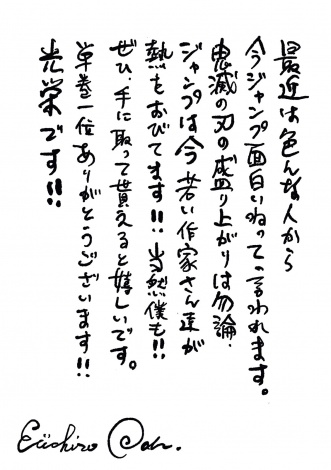 最近は色んな人から
今ジャンプ面白いねって言われます。
鬼滅の刃の盛り上がりは勿論、
ジャンプは今若い作家さん達が
熱をおびてます!!当然僕も!!
ぜひ手に取って貰えると嬉しいです。
単巻一位ありがとうございます!!
光栄です!!
Eiichiro Oda.